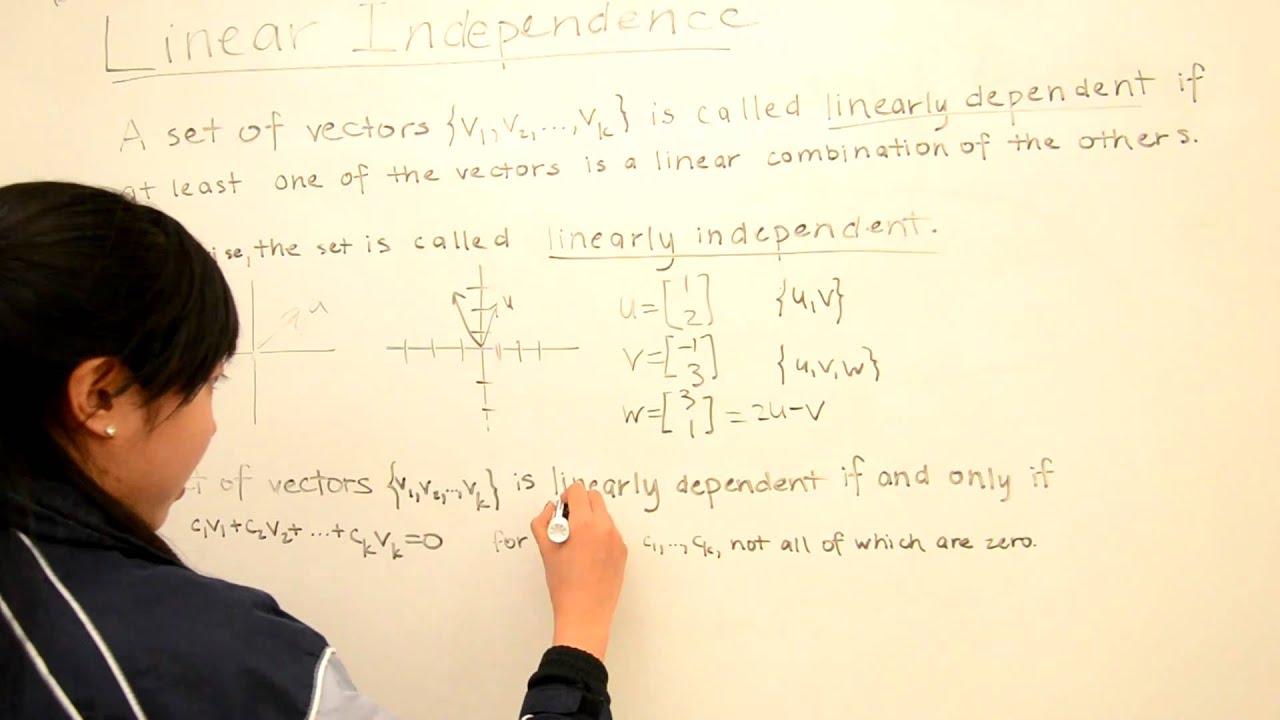 Linear Independence
A set of vectors {v₁, v₂, ..., vₖ} is called linearly dependent if
at least one of the vectors is a linear combination of the others.
the set is called linearly independent.
u
u
u = [1 2] {u, v}
v = [-1 3] {u, v, w}
w = [3 1] = 2u - v
of vectors {v₁, v₂, ..., vₖ} is linearly dependent if and only if
c₁v₁ + c₂v₂ + ... + cₖvₖ = 0 for c₁, ..., cₖ, not all of which are zero.